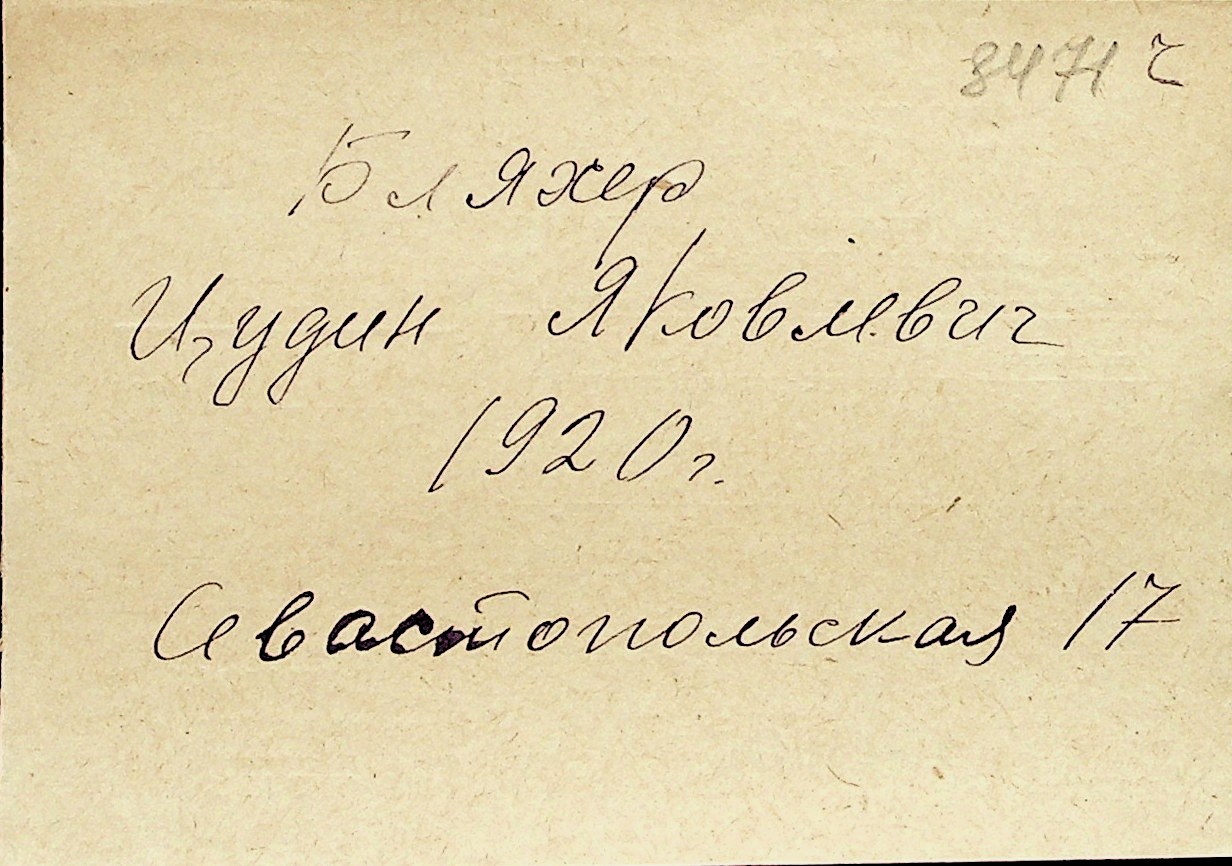 8471 ч
Бляхер
Цудин Яковлевич
1920 г.
Севастопольская 17